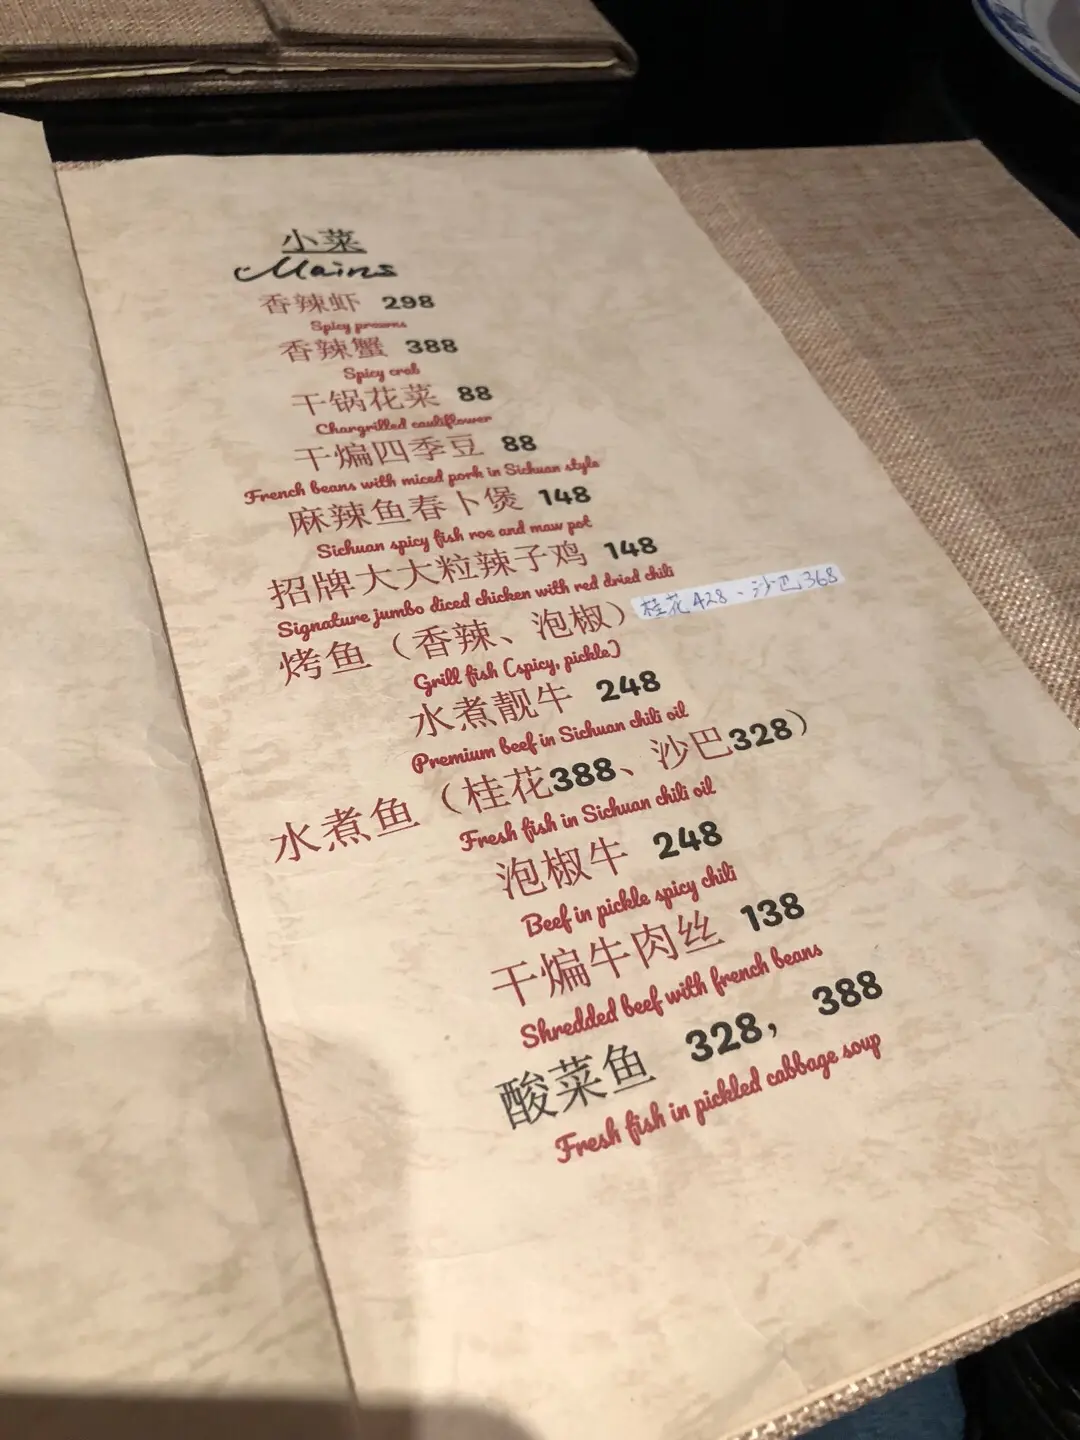 小菜
Mains
香辣虾 298
Spicy prawns
香辣蟹 388
Spicy crab
干锅花菜 88
Chargrilled cauliflower
干煸四季豆 88
French beans with miced pork in Sichuan style
麻辣鱼春卜煲 148
Sichuan spicy fish roe and maw pot
招牌大大粒辣子鸡 148
Signature jumbo diced chicken with red dried chili
烤鱼（香辣、泡椒） 桂花428、沙巴368
Grill fish (spicy, pickle)
水煮靓牛 248
Premium beef in Sichuan chili oil
水煮鱼（桂花388、沙巴328）
Fresh fish in Sichuan chili oil
泡椒牛 248
Beef in pickle spicy chili
干煸牛肉丝 138
Shredded beef with french beans
酸菜鱼 328， 388
Fresh fish in pickled cabbage soup